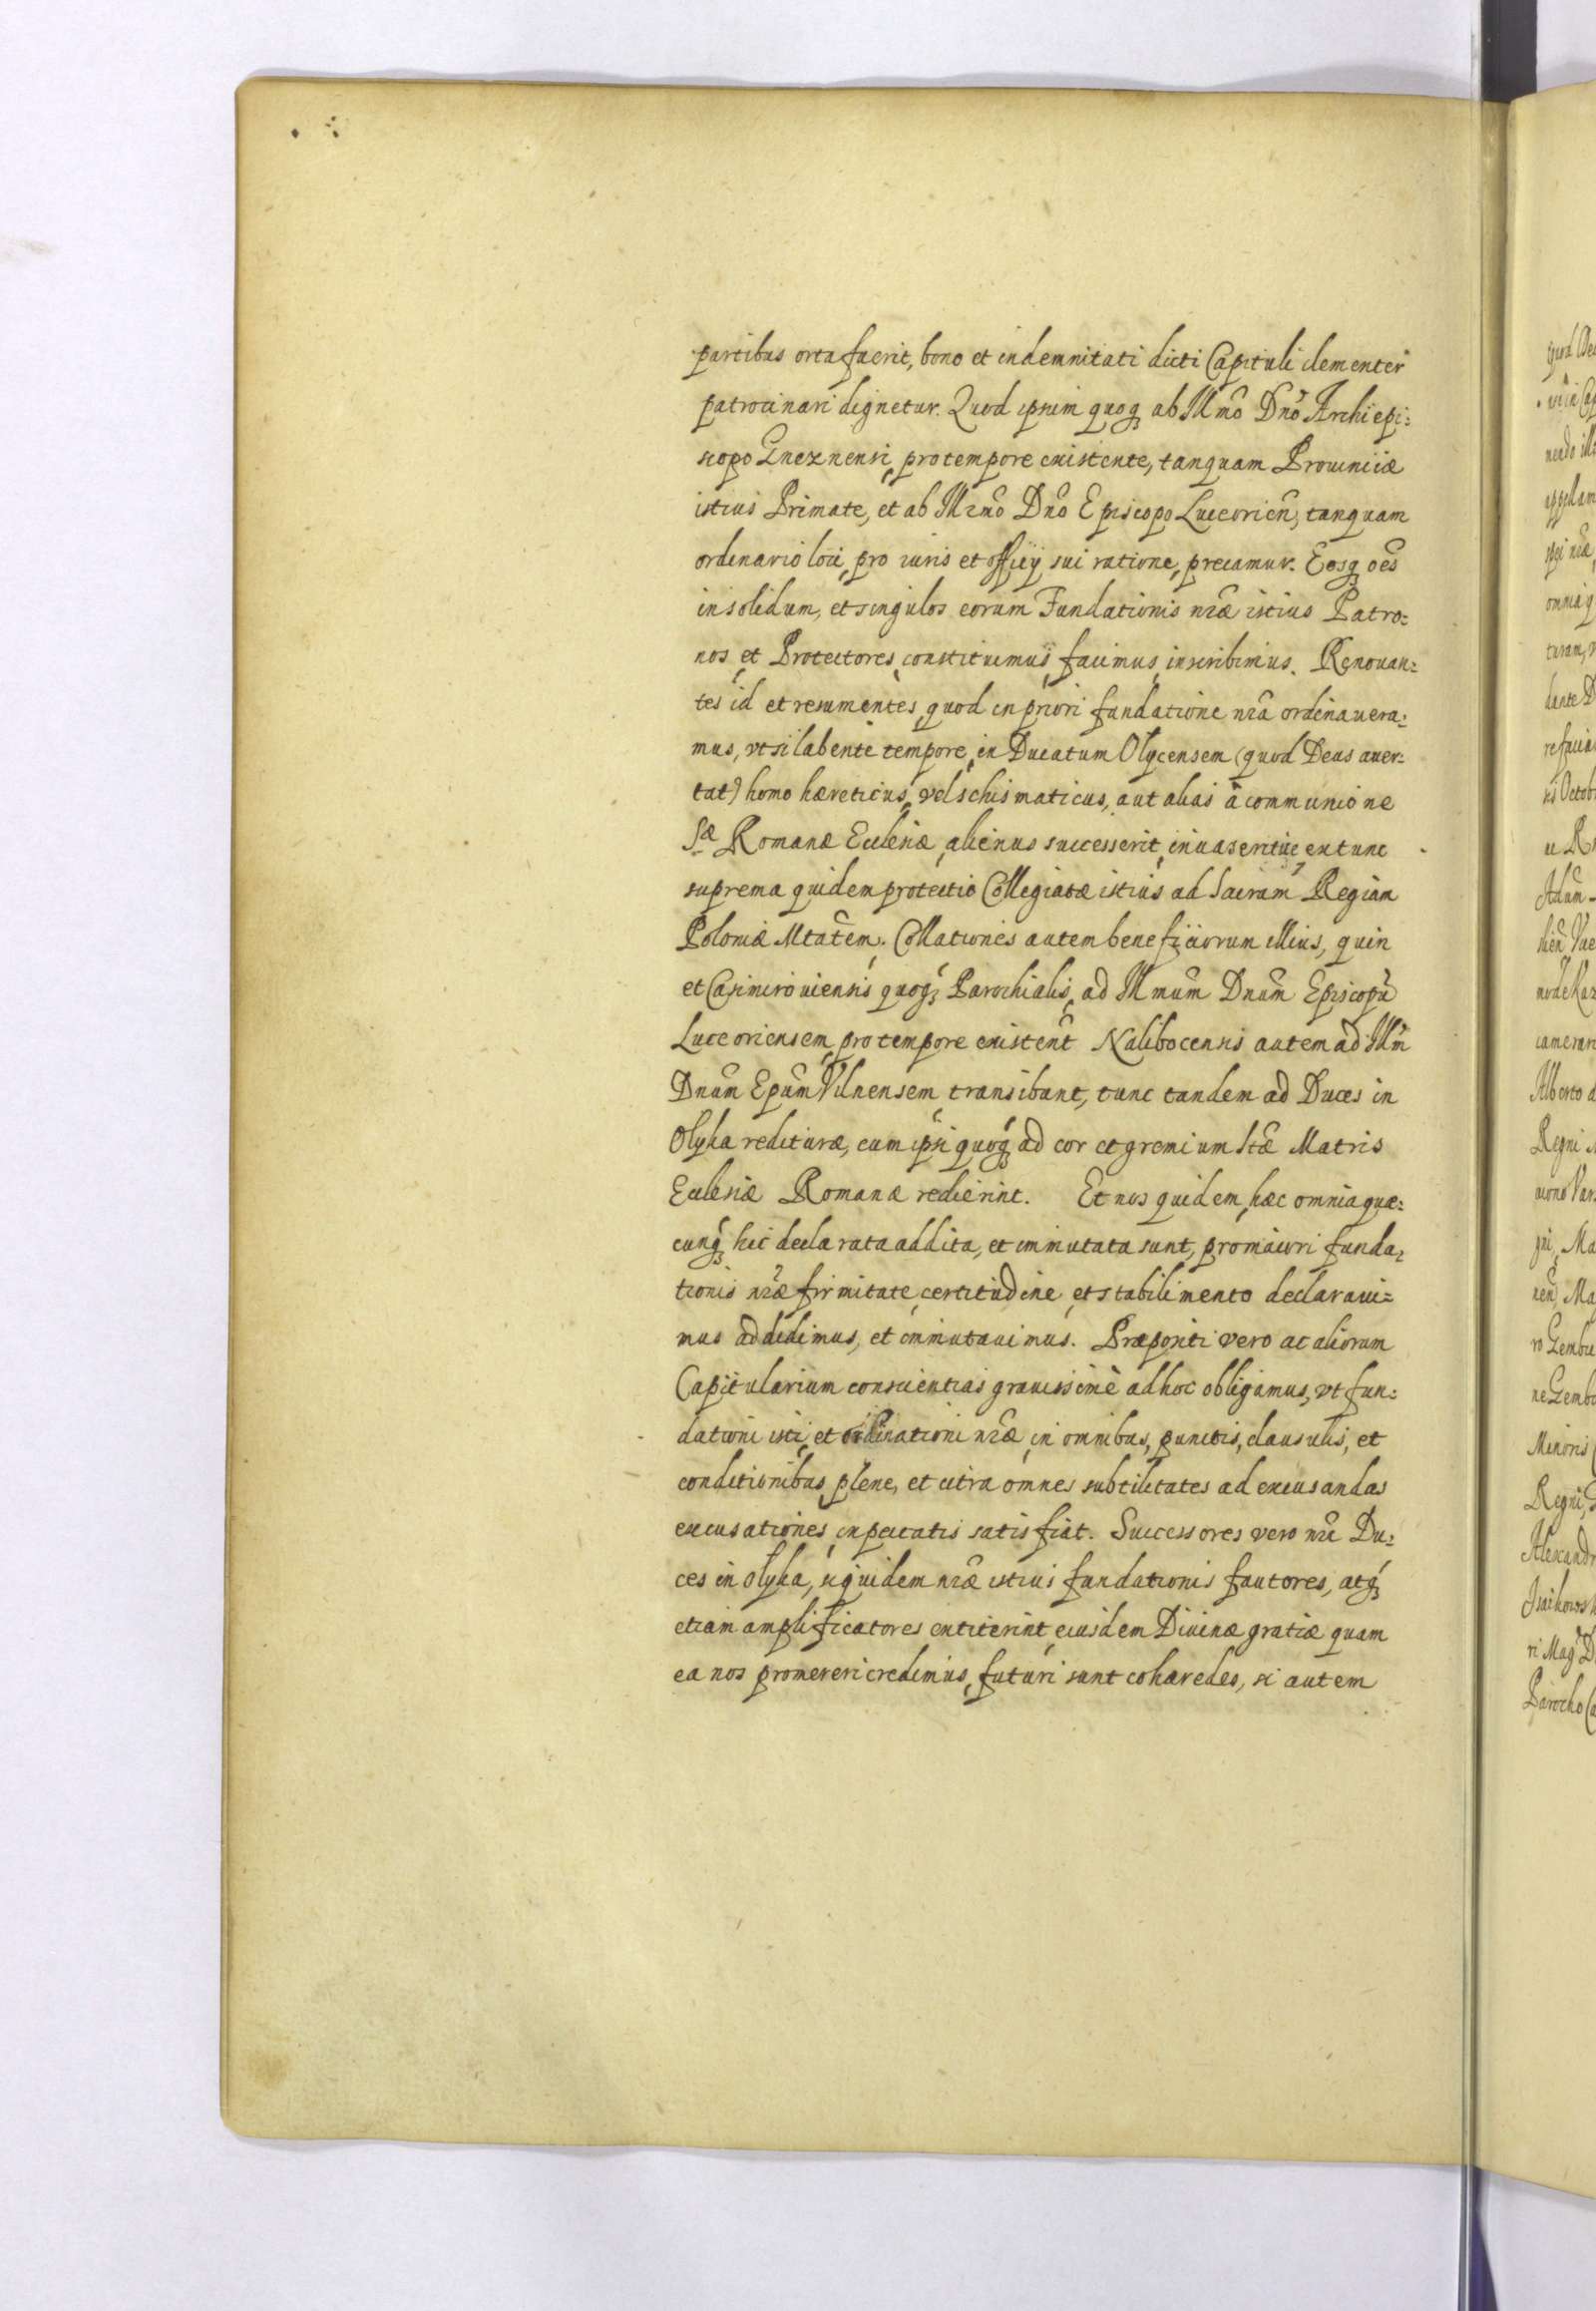 partibus orta fuerit, bono et indemnitati dicti Capituli clementer
patrocinari dignetur. Quod ipsum quoq, ab Illmo Dno Archiepi:
scopo Gneznensi, pro tempore existente, tanquam Prouinciæ
istius Primate, et ab Illmo Dno Episcopo Luceorien̄, tanquam
ordinario loci, pro iuris et officij sui ratione, precamur. Eosq, oēs
in solidum, et singulos eorum Fundationis nr̄æ istius Patro:
nos et Protectores, constituimus, facimus, inscribimus. Renouan:
tes id et resumentes, quod in priori fundatione nr̄a ordinauera:
mus, vt si labente tempore, in Ducatum Olycensem (quod Deus auer:
tat) homo hæreticus, vel schismaticus, aut alias à communione
Sæ Romanæ Ecclesiæ, alienus successerit, inuaseritue extunc
suprema quidem protectio Collegiatæ istius ad Sacram Regiam
Poloniæ Mtatem. Collationes autem beneficiorum illius, quin
et Casimirouiensis quoq, Parochialis, ad Illmum Dnum Episcopū
Luceoriensem, pro tempore existen̄t Nalibocensis autem ad Illm̄
Dnum Epum Vilnensem transibunt, tunc tandem ad Duces in
Olyka redituræ, cum ipsi quoq, ad cor et gremium Stæ Matris
Ecclesiæ Romanæ redierint. Et nos quidem, hæc omnia quæ:
cunq, hic declarata addita, et immutata sunt, pro maiori funda:
tionis nr̄æ firmitate, certitudine, et stabilimento declaraui:
mus addidimus, et immutauimus. Præpositi vero ac aliorum
Capitularium conscientias grauissimè ad hoc obligamus, vt fun:
dationi isti, et ordinationi nr̄æ, in omnibus, punctis, clausulis, et
conditionibus, plene, et citra omnes subtilitates ad excusandas
excusationes, in peccatis satis fiat. Successores vero nr̄i Du:
ces in Olyka, siquidem nr̄æ istius fundationis fautores, atq,
etiam amplificatores extiterint, eiusdem Diuinæ gratiæ quam
ea nos promereri credimus, futuri sunt cohæredes, si autem